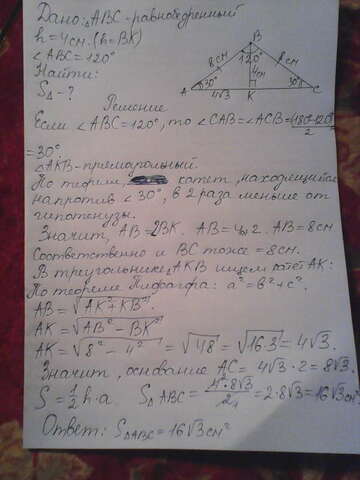 Дано: △ABC - равнобедренный
h = 4 см. (h = BK)
∠ABC = 120°
Найти:
S△ - ?
B
8 см
8 см
120°
4 см
A
30°
4√3
K
30°
C
Решение
Если ∠ABC = 120°, то ∠CAB = ∠ACB = (180°-120°)/2
= 30°
△AKB - прямоугольный.
По теореме, катет, находящийся
напротив ∠30°, в 2 раза меньше от
гипотенузы.
Значит, AB = 2BK. AB = 4·2. AB = 8 см
Соответственно и BC тоже = 8 см.
В треугольнике △AKB ищем катет AK:
По теореме Пифагора: a² = b² + c².
AB = √(AK² + KB²).
AK = √(AB² - BK²)
AK = √(8² - 4²) = √48 = √(16·3) = 4√3.
Значит, основание AC = 4√3 · 2 = 8√3.
S = 1/2 h·a. S△ABC = (4·8√3)/2 = 2·8√3 = 16√3 см²
Ответ: S△ABC = 16√3 см²